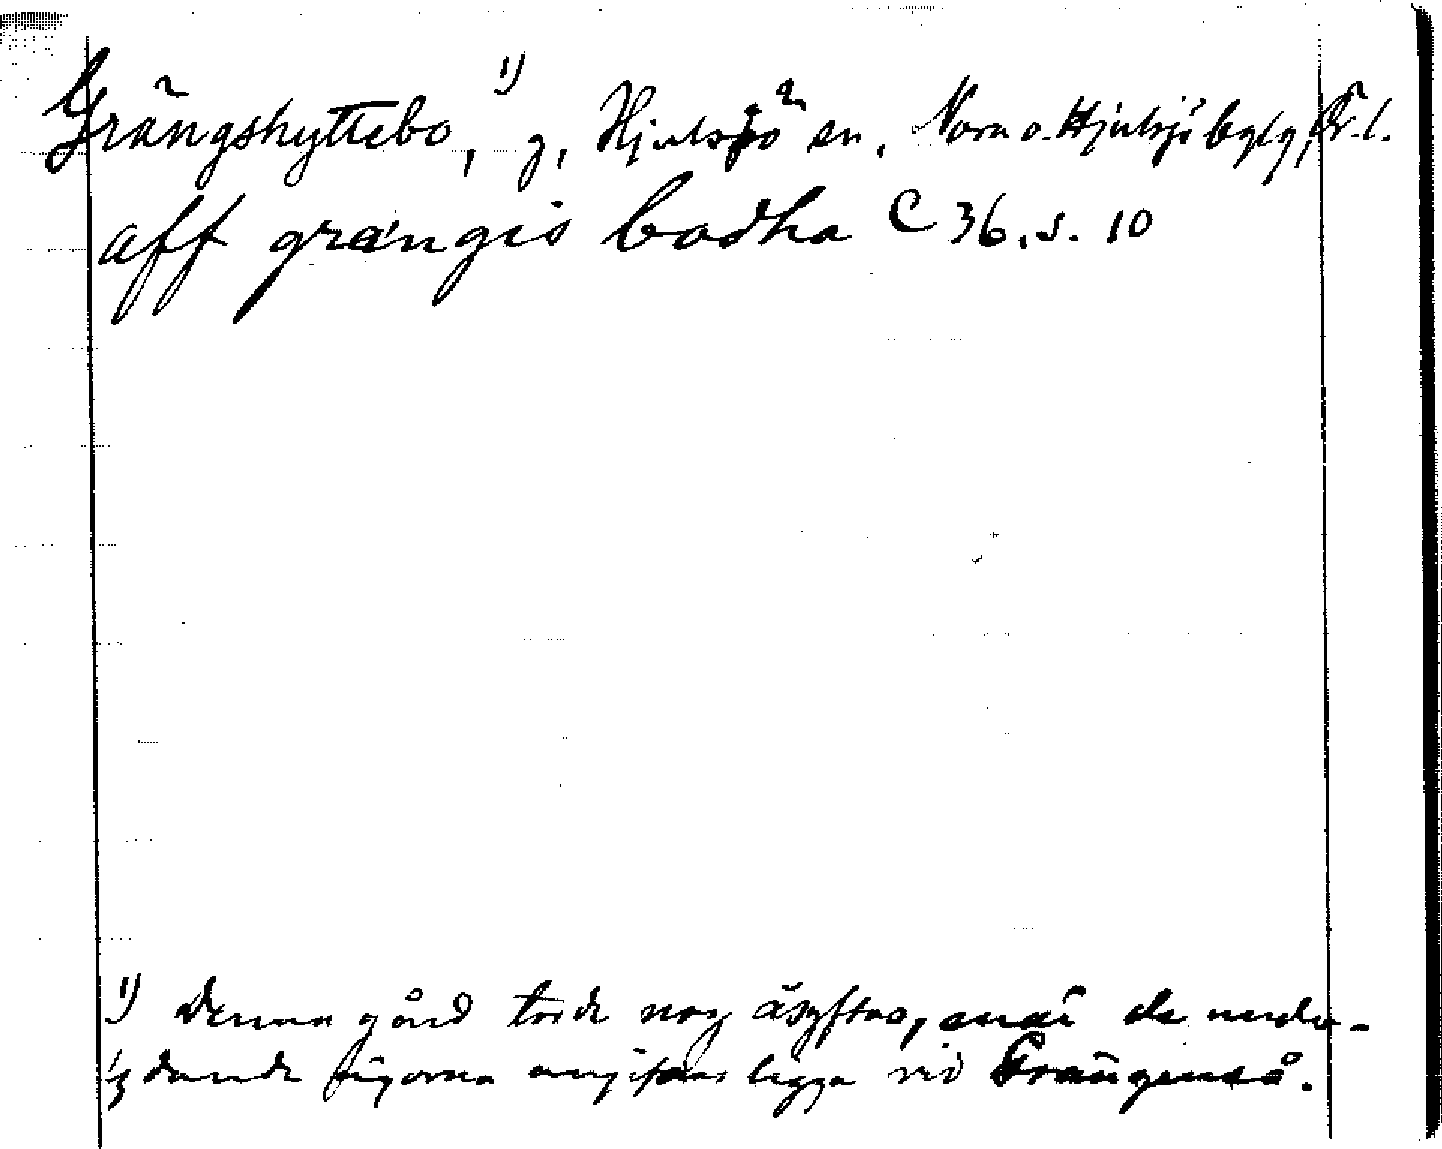 Grängshyttebo, 1) g, Hjulsjö sn, Nora o. Hjulsjö bgslg, Ör. l.
aff grängis bodha C 36. s. 10
1) Denna gård torde nog åsyftas, enär de
ägorna angifvas ligga vid Grängenså.